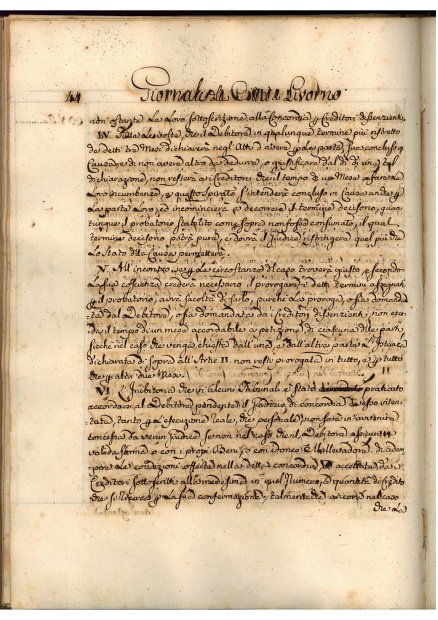 44 Giornale della Città di Livorno
non ostante la loro sottoscrizione alla Concordia i Creditori dissenzienti.
IV. che il Debitore in qualunque termine più ristretto
de detti tre Mesi dichiarerà negli Atti d'avere per la parte sua concluso in
Causa, e di non avere altro da dedurre, o giustificare dal dì di una tal
dichiarazione, non resterà ai Creditori che il tempo di un Mese a fare le
loro incumbenze, e questo spirato s'intenderà concluso in Causa anche per
la parte loro, ed incomincierà a decorrere il termine decisorio, quan
tunque il probatorio stabilito come sopra non fosse consumato, il qual
termine decisorio potrà pure, e dovrà il Giudice ristringere quel più che
lo stato della Causa permetterà.
V. All'incontro se per le circostanze del caso troverà giusto, e secondo
la sua coscienza crederà necessario il prorogare i detti termini assegnati
per il probatorio, avrà facoltà di farlo, purchè la proroga, o sia domanda
ta dal Debitore, o sia domandata da i Creditori dissenzienti non ecce
da il tempo di un mese accordabile a petizione di ciascuna delle parti
sicchè nel caso che venga chiesta dall'una, e dall'altra parte
dichiarata di sopra all'Artic. II. non resti prorogata in tutto, e per tutto
che per altri due Mesi.
VI. L'inibitoria che in alcuni Tribunali è stato praticato
accordarsi al Debitore pendente il giudizio di concordia
tanto per l'esecuzione reale, che personale non sarà in avvenire
concessa da verun Giudice se non nel caso che il Debitore assicuri in
valida forma o con i propri Beni, o con idoneo Mallevadore di adem
pire le condizioni offerte nella detta concordia accettata da i
Creditori sottoscritti alla medesima in quel Numero, e quantità di Credito
che si ricerca per la sua confermazione, talmente che ancora nel caso
che la